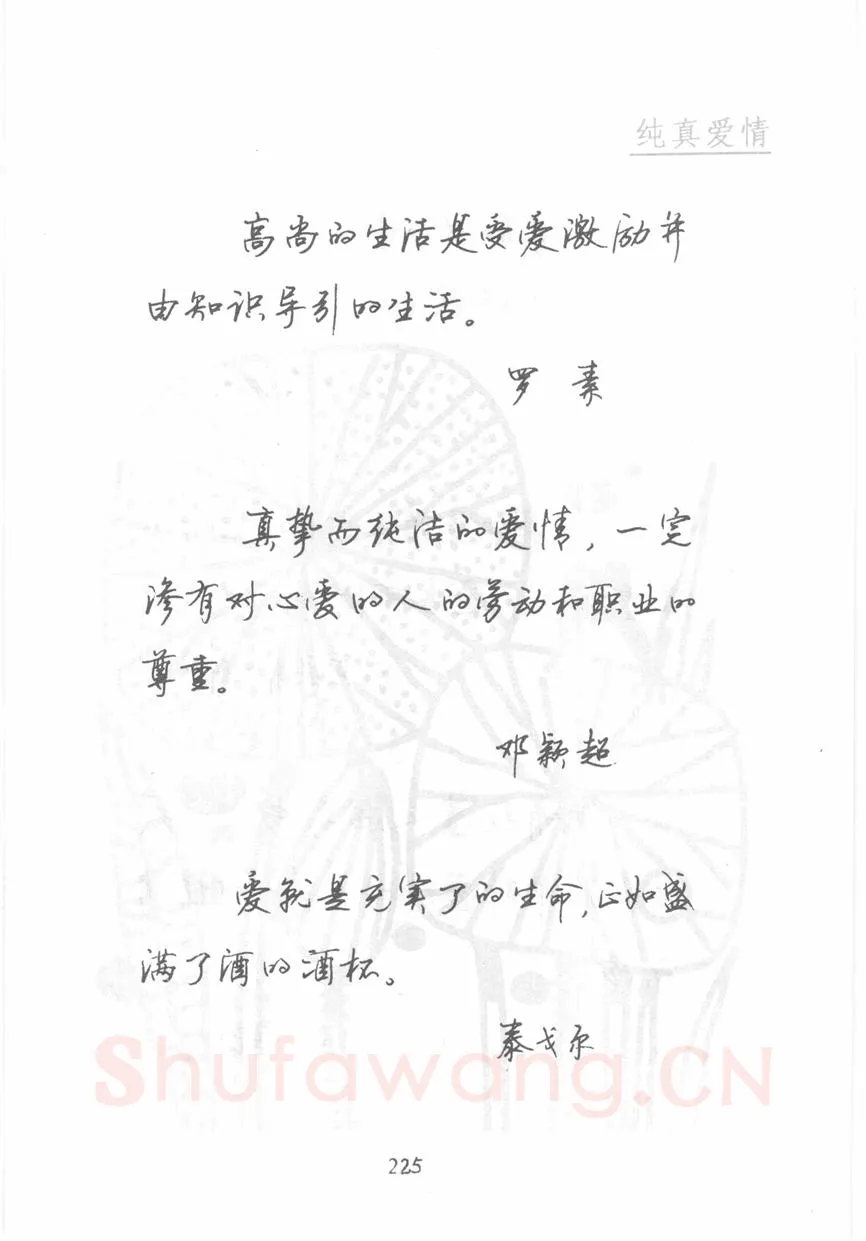 纯真爱情
高尚的生活是受爱激励并
由知识导引的生活。
罗素
真挚而纯洁的爱情，一定
渗有对心爱的人的劳动和职业的
尊重。
邓颖超
爱就是充实了的生命，正如盛
满了酒的酒杯。
泰戈尔
Shufawang.CN
225